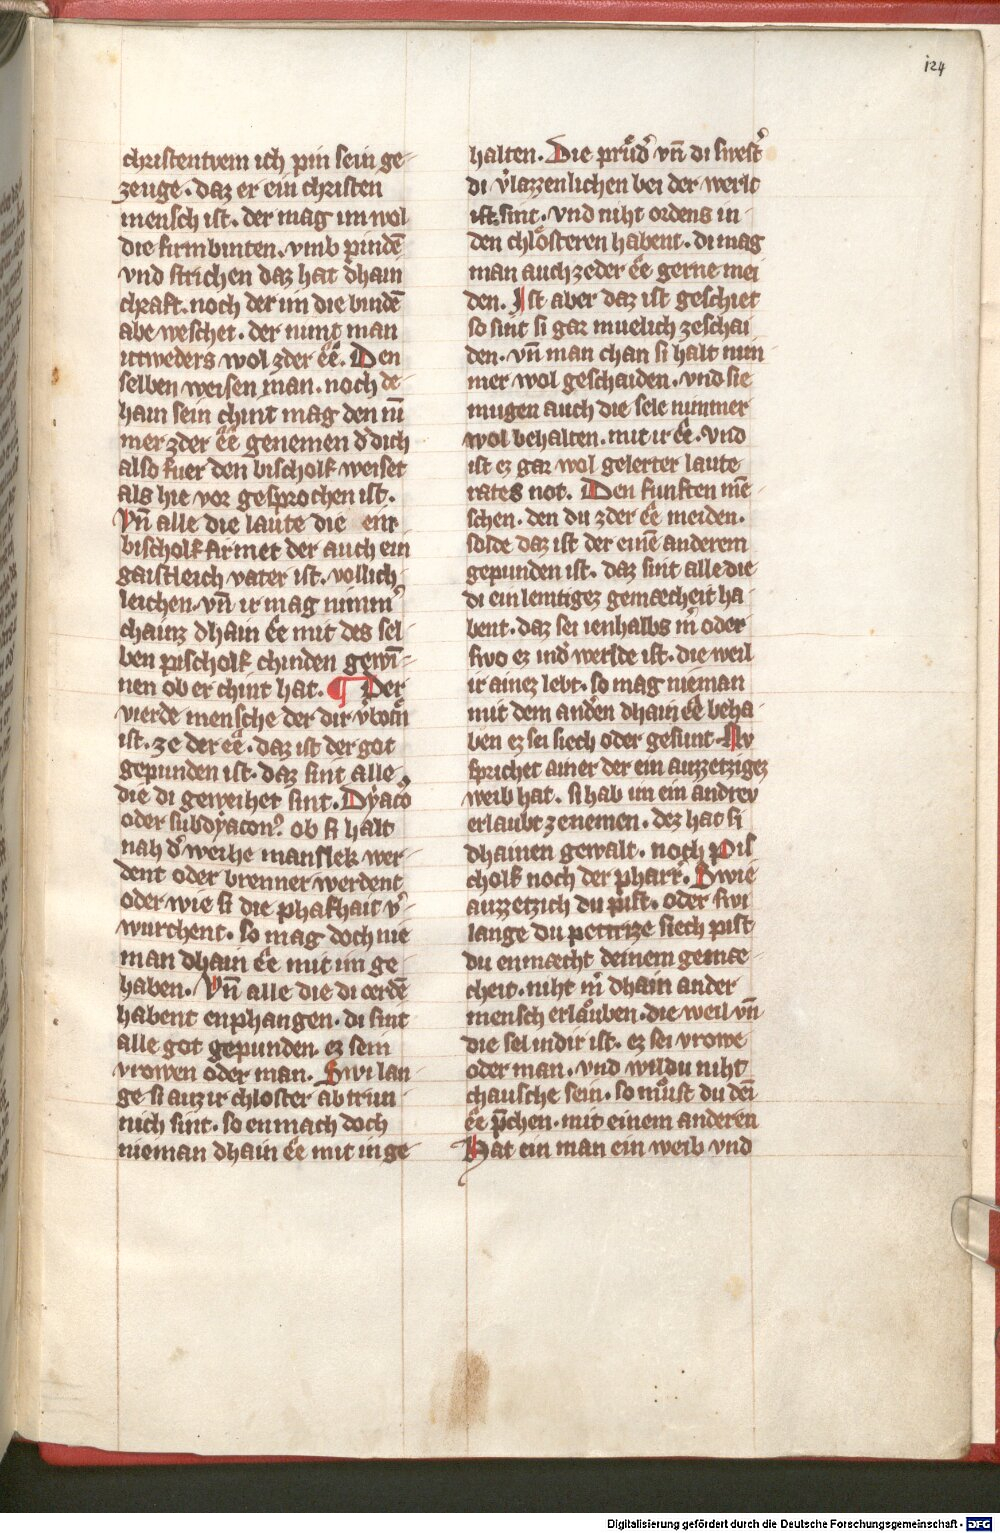 124
christentvem ich pin sein ge-
zeuge · daz er ein christen
mensch ist · der mag im wol
die firmbinten · vmb pindē
vnd strichen daz hat dhain
chraft · noch der im die bindē
abe weschet · der nimt man
ietweders wol zder ee · Den
selben weisen man · noch de-
hain sein chint mag den nī
mer zder ee genemen d᷑ dich
also fuer den bischolf weiset
als hie vor gesprochen ist ·
Vn̄ alle die laute die ein
bischolf firmet der auch ein
gaistleich vater ist · vollich-
leichen · vn̄ ir mag nimm᷑
chainz dhain ee mit des sel-
ben pischolf chinden gewī-
nen ob er chint hat · ¶ Der
vierde mensche der dir v᷑botē
ist · ze der ee · daz ist der got
gepunden ist · daz sint alle
die di geweihet sint · Dyacō
oder subdyacon᷑ ob si halt
nah d᷑ weihe manslek wer-
dent oder brenner werdent
oder wie si die phafhait v᷑-
wurchent · so mag doch nie
man dhain ee mit im ge-
haben · Vn̄ alle die di œrdē
habent enphangen · di sint
alle got gepunden · ez sein
vrowen oder man · Swi lan-
ge si auz ir chloster abtrun-
nich sint · so enmach doch
nieman dhain ee mit in ge-
halten · Die pruͦd᷑ vn̄ di swest᷑
di v᷑lazzenlichen bei der werlt
ist sint · vnd niht ordens in
den chloͤsteren habent · di mag
man auch zeder ee gerne mei
den · Ist aber daz ist geschiet
so sint si gar muelich zeschai
den · vn̄ man chan si halt nim
mer wol geschaiden · vnd sie
mugen auch die sele nimmer
wol behalten · mit ir ee · vnd
ist ez gar wol gelerter laute
rates not · Den funften mē-
schen · den du zder ee meiden ·
solde daz ist der einē anderem
gepunden ist · daz sint alle die
di ein lemtigez gemæcheit ha-
bent · daz sei ienhalbs m᷑ oder
swo ez in d᷑ werlde ist · die weil
ir ainez lebt · so mag nieman
mit dem and᷑en dhain ee beha-
ben ez sei siech oder gesunt · Nv
sprichet ainer der ein auzzetzigez
weib hat · si hab im ein andrev
erlaubt zenemen · dez hat si
dhainen gewalt · noch pis
cholf noch der pharr᷑ · Swie
auzzetzich du pist · oder swi
lange du pettrize siech pist
du enmæcht deinem gemæ-
cheit · niht m᷑ dhain ander
mensch erlauben · die weil vn̄
die sel in dir ist · ez sei vrowe
oder man · vnd wildu niht
chausche sein · so muͦst du dei
ee p̄chen · mit einem anderen
Hat ein man ein weib vnd
Digitalisierung gefördert durch die Deutsche Forschungsgemeinschaft - DFG